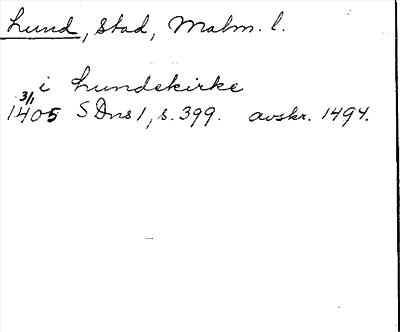 Lund, stad, Malm. l.
i Lundekirke
3/1
1405 SDns 1, s. 399. avskr. 1494.